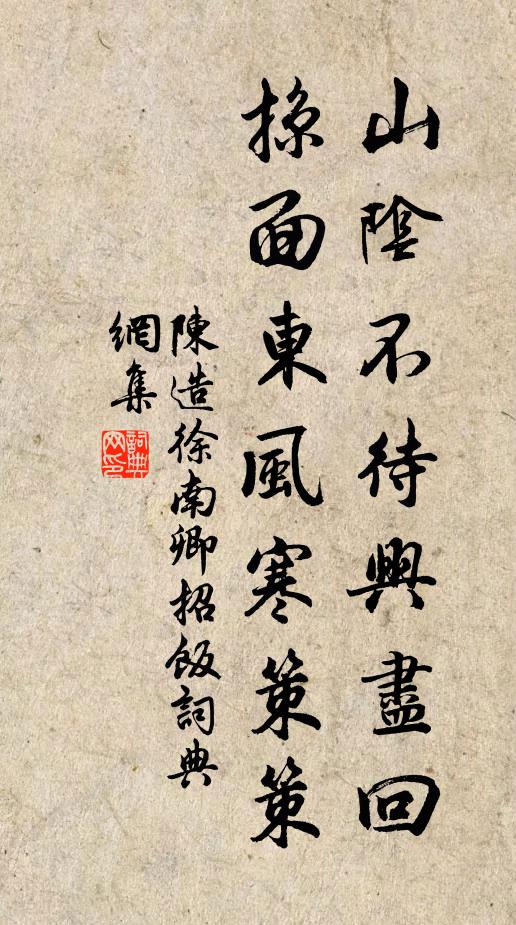 山陰不待興盡回
掠面東風寒策策
陳造徐南卿招飯詞典
網集
詞典
網印